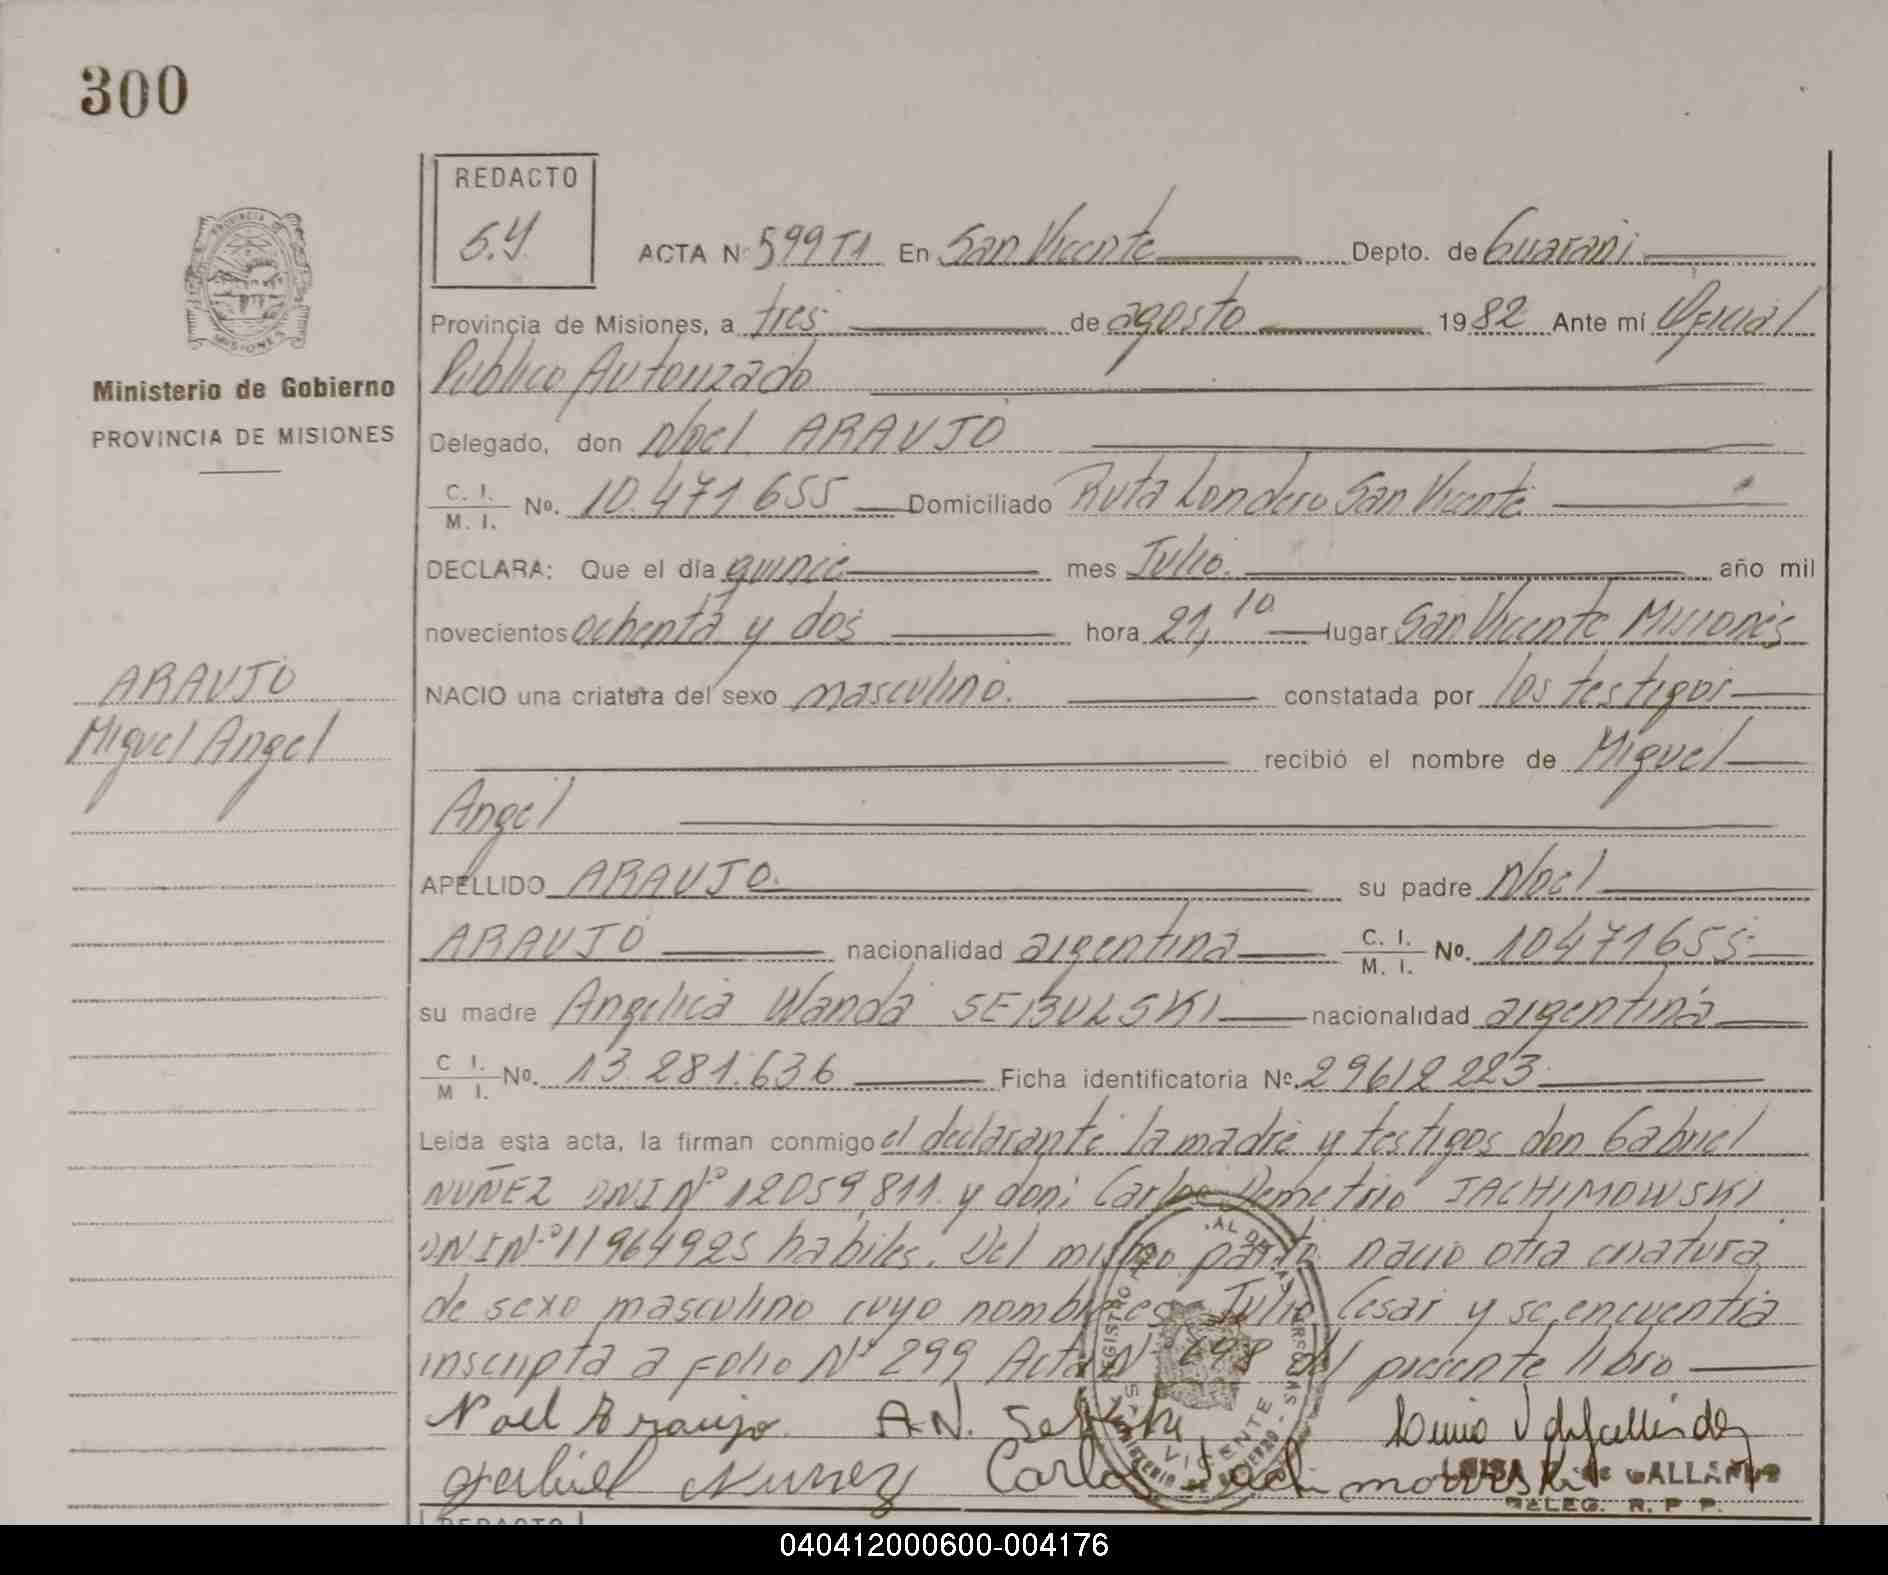 300
REDACTO
S.Y.
PROVINCIA DE
MISIONES
Ministerio de Gobierno
PROVINCIA DE MISIONES
ARAUJO
Miguel Angel
ACTA Nº 599 T1 En San Vicente Depto. de Guarani
Provincia de Misiones, a tres de agosto 1982 Ante mí Oficial
Publico Autorizado
Delegado, don Noel ARAUJO
C. I. / M. I. No. 10.471655 Domiciliado Ruta Londero San Vicente
DECLARA: Que el día quince mes Julio. año mil
novecientos ochenta y dos hora 21,10 lugar San Vicente Misiones
NACIO una criatura del sexo masculino. constatada por los testigos
recibió el nombre de Miguel
Angel
APELLIDO ARAUJO. su padre Noel
ARAUJO nacionalidad argentina C. I. / M. I. No. 10471655
su madre Angelica Wanda SEBULSKI nacionalidad argentina
C I. / M I. No. 13.281.636 Ficha identificatoria Nº. 29612223
Leída esta acta, la firman conmigo el declarante la madre y testigos don Gabriel
NUÑEZ DNI Nº 12059,811. y don Carlos Demetrio JACHIMOWSKI
DNI Nº 11964925 habiles. Del mismo parto nacio otra criatura
de sexo masculino cuyo nombre es Julio Cesar y se encuentra
inscripta a Folio Nº 299 Acta Nº 598 del presente libro
Noel Araujo A.N. Sebulski
Gabriel Nunez Carlos Jachimowski
GALLARDO
DELEG. R. P. P.
VICENTE
REDACTO
040412000600-004176